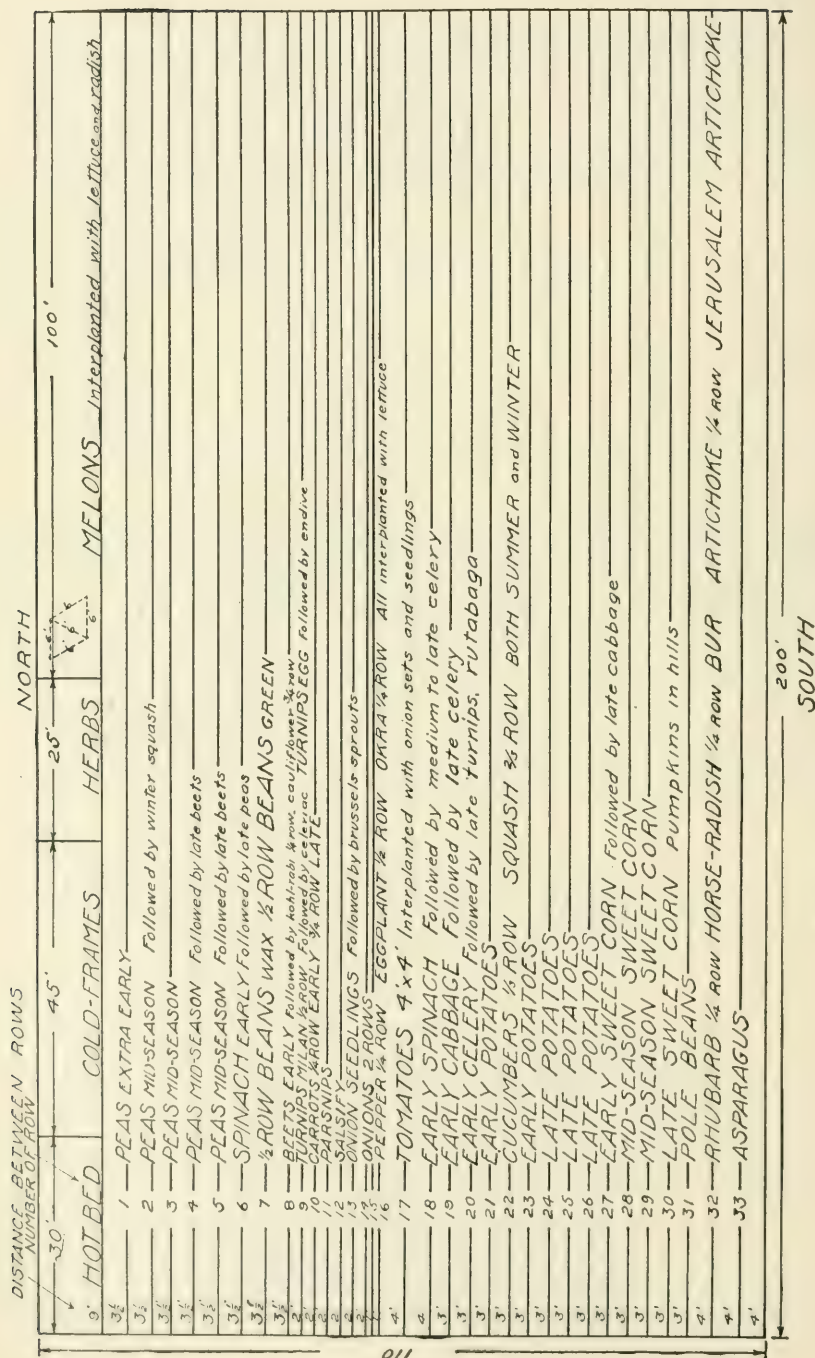 NORTH
DISTANCE BETWEEN ROWS
NUMBER OF ROW
30' 45' 25' 100'
9' HOT BED COLD-FRAMES HERBS MELONS Interplanted with lettuce and radish
6' 6' 6'
3½' 1 PEAS EXTRA EARLY
3½' 2 PEAS MID-SEASON Followed by winter squash
3½' 3 PEAS MID-SEASON
3½' 4 PEAS MID-SEASON Followed by late beets
3½' 5 PEAS MID-SEASON Followed by late beets
3½' 6 SPINACH EARLY Followed by late peas
3½' 7 ½ ROW BEANS WAX ½ ROW BEANS GREEN
3½' 8 BEETS EARLY Followed by kohl-rabi ¼ row, cauliflower ¾ row
2' 9 TURNIPS MILAN ½ ROW Followed by celeriac TURNIPS EGG followed by endive
2' 10 CARROTS ¼ ROW EARLY ¾ ROW LATE
2' 11 PARSNIPS
2' 12 SALSIFY
2' 13 ONION SEEDLINGS Followed by brussels sprouts
2' 14 ONIONS 2 ROWS
15
16 PEPPER ¼ ROW EGGPLANT ½ ROW OKRA ¼ ROW All interplanted with lettuce
4' 17 TOMATOES 4'x4' Interplanted with onion sets and seedlings
4 18 EARLY SPINACH Followed by medium to late celery
3' 19 EARLY CABBAGE Followed by late celery
3' 20 EARLY CELERY Followed by late turnips, rutabaga
3' 21 EARLY POTATOES
3' 22 CUCUMBERS ¼ ROW SQUASH ¾ ROW BOTH SUMMER and WINTER
3' 23 EARLY POTATOES
3' 24 LATE POTATOES
3' 25 LATE POTATOES
3' 26 LATE POTATOES
3' 27 EARLY SWEET CORN Followed by late cabbage
3' 28 MID-SEASON SWEET CORN
3' 29 MID-SEASON SWEET CORN
3' 30 LATE SWEET CORN Pumpkins in hills
3' 31 POLE BEANS
4' 32 RHUBARB ¼ ROW HORSE-RADISH ¼ ROW BUR ARTICHOKE ¼ ROW JERUSALEM ARTICHOKE
4' 33 ASPARAGUS
4'
200'
SOUTH